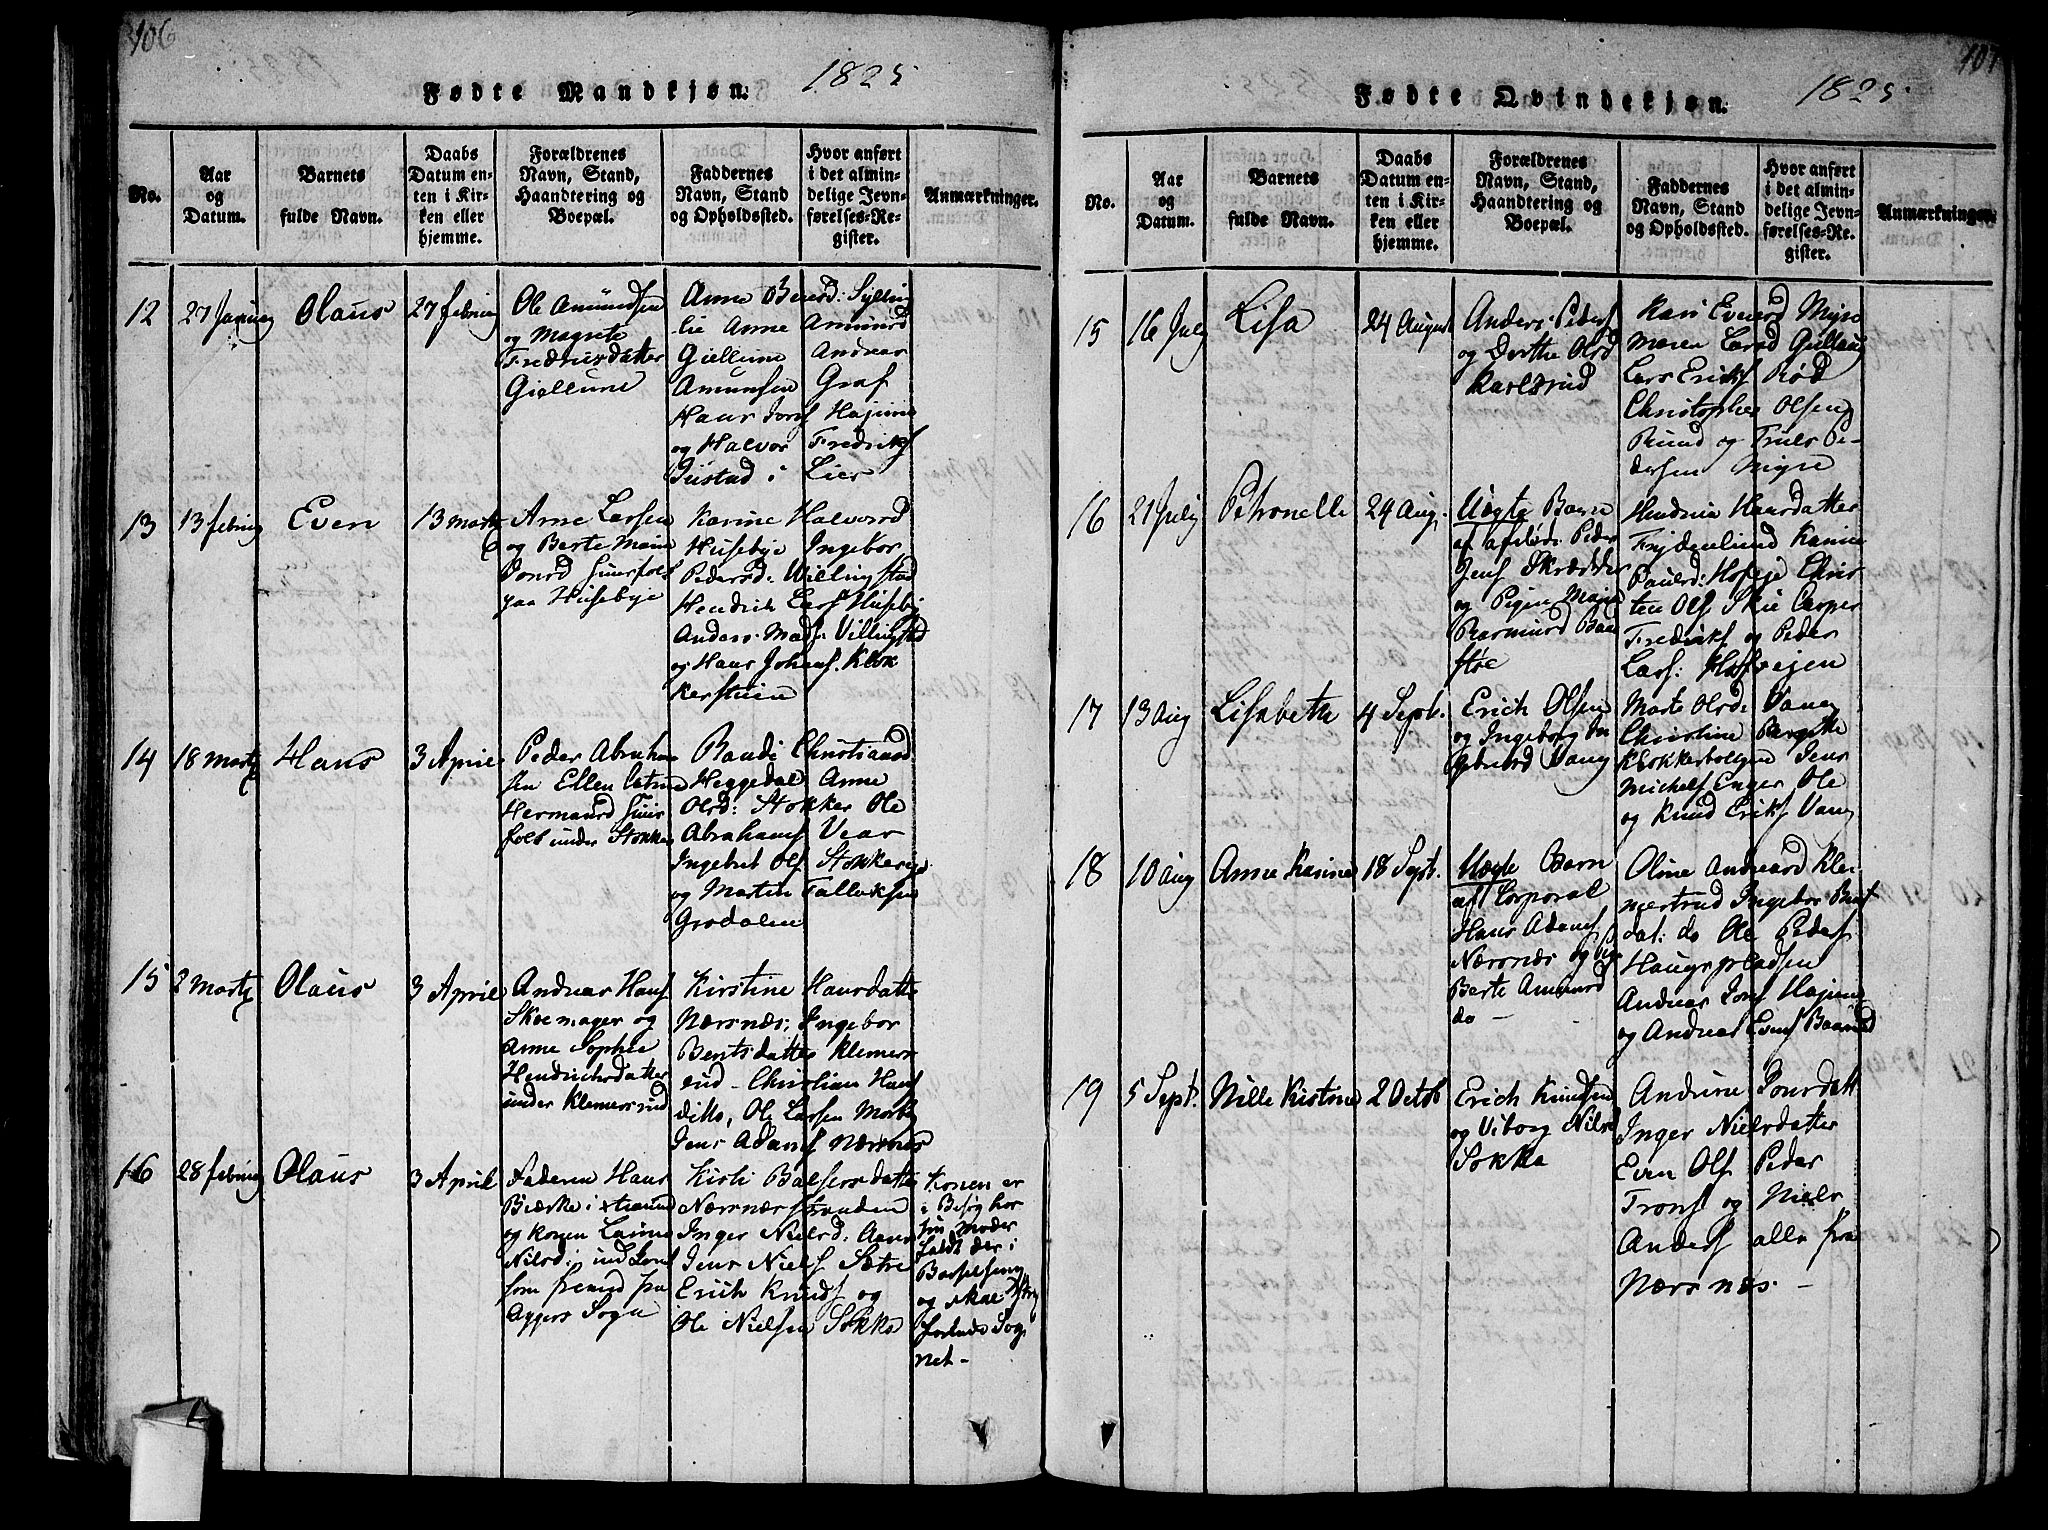 106
Fødte Mandkjøn. 1825
No.
Aar
og
Datum.
Barnets
fulde Navn.
Daabs
Datum en-
ten i Kir-
ken eller
hjemme.
Forældrenes
Navn, Stand,
Haandtering og
Boepæl.
Faddernes
Navn, Stand
og Opholdssted.
Hvor anført
i det almin-
delige Jevn-
førelses-Re-
gister.
Anmærkninger.
12
27 Januar
Olaus
27 februar
Ole Amundsen
og Magrete
Fredrisdatter
Giellume
Anne
lie Anne Amund
Giellume Andreas
Amunsen Graf
Hans Jons
og Halvor Fredriks
Justad i Lier
13
13 febru
Even
13 Marty
Arne Larsen
og Berte Marie
Jonsd
paa Husebye
Karine Halvorsd
Husebye Ingebor
Pedersd: Willingstad
Hendrik Lars Huseby
Anders Mads: Villingstad
og Hans Johans. Klok
kerstuen
14
18 Marty
Hans
3 April
Peder Abraham
sen Ellen Catrine
Hermansd
folk under Stokker
Christiansd
Heggedal Anne
Olsd: Stokker Ole
Abrahams Vear
Ingebret Ols Stokkereje
og Morten Falleksen
Grodalen
15
2 Marty
Olaus
3 April
Andreas Hans
Skoemager og
Anne Sophie
Hendrichsdatter
under Klemersrud
Kirstine Hansdatter
Nærsnæs, Ingebor
Bentsdatter Klemers
rud - Christian Hans
ditto, Ole Larsen Morby
Jens Adams Nærsnæs
16
28 februg
Olaus
3 April
Faderen Hans
Bierke i
og konen
Nilsd:
som fremed fra
Aggers Sogn
Kirsti Balsersdatter
Nærsnæsstranden
Inger Nielsd.
Jens Niels Sætre
Erich Knuds og
Ole Nielsen Sokka
Konen er
i Besøg hos
sin Moder
faldt der i
Barselseng
og skal
Sog
net -
107
Fødte Qvindekjøn. 1825.
No.
Aar
og
Datum.
Barnets
fulde Navn.
Daabs
Datum en-
ten i Kir-
ken eller
hjemme.
Forældrenes
Navn, Stand,
Haandtering og
Boepæl.
Faddernes
Navn, Stand
og Opholdssted.
Hvor anført
i det almin-
delige Jevn-
førelses-Re-
gister.
Anmærkninger.
15
16 July
Lisa
24 August
Anders Peders
og Dorthe Olsd
Karlsrud
Kari Evensd Myre
Maren Larsd Gielloug
Lars Eriks Rød
Christopher Olsen
Ruud og Truls Pe-
dersen Myre
16
21 July
Petronelle
24 Aug.
Uægte Barn
af afdøde Peder
Jens Skrædder
og Pigen Maria
Rasmusd
Hansdatter
Frydenlund Karine
Paulsd: Chris
ten Ols Skie Casper
Fredriks og Peder
Lars: Hofvejen
17
13 Aug
Lisabeth
4 Sept.
Erich Olsen
og Ingeborg In
gebretsd Vang
Marte Olsd: Vang
Christine
Klokkerbolgen Jens
Michels Enger Ole
og Knud Eriks Vang
18
10 Aug
Anne Karine
18 Sept.
Uægte Barn
af Corporal
Hans Adams
Nærsnæs og
Berte Amundsd
do -
Oline Andreasd Kle-
mertrud Ingebor Bent
dat: do Ole Peders
Haugspladsen
Andreas Jons
og Andreas Evens
19
5 Sept.
Nille Kistine
2 Octob
Erich Knudsen
og Viborg Nilsd
Sokka
Andrine Jonsdatt
Inger Nielsdatter
Even Ols Peder
Trons og Niels
Anders alle fra
Nærsnæs. -